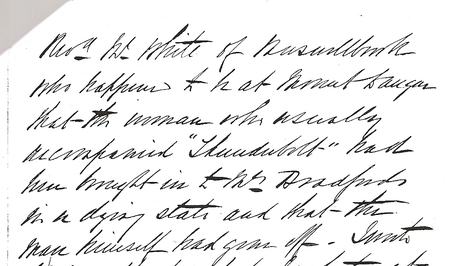 Revd. Mr. White of Muswellbrook
who happens to be at Mount Dangar
that the woman who usually
accompanied "Thunderbolt" had
been brought in to Mrs. Bradfords
in a dying state and that the
man himself had gone off.